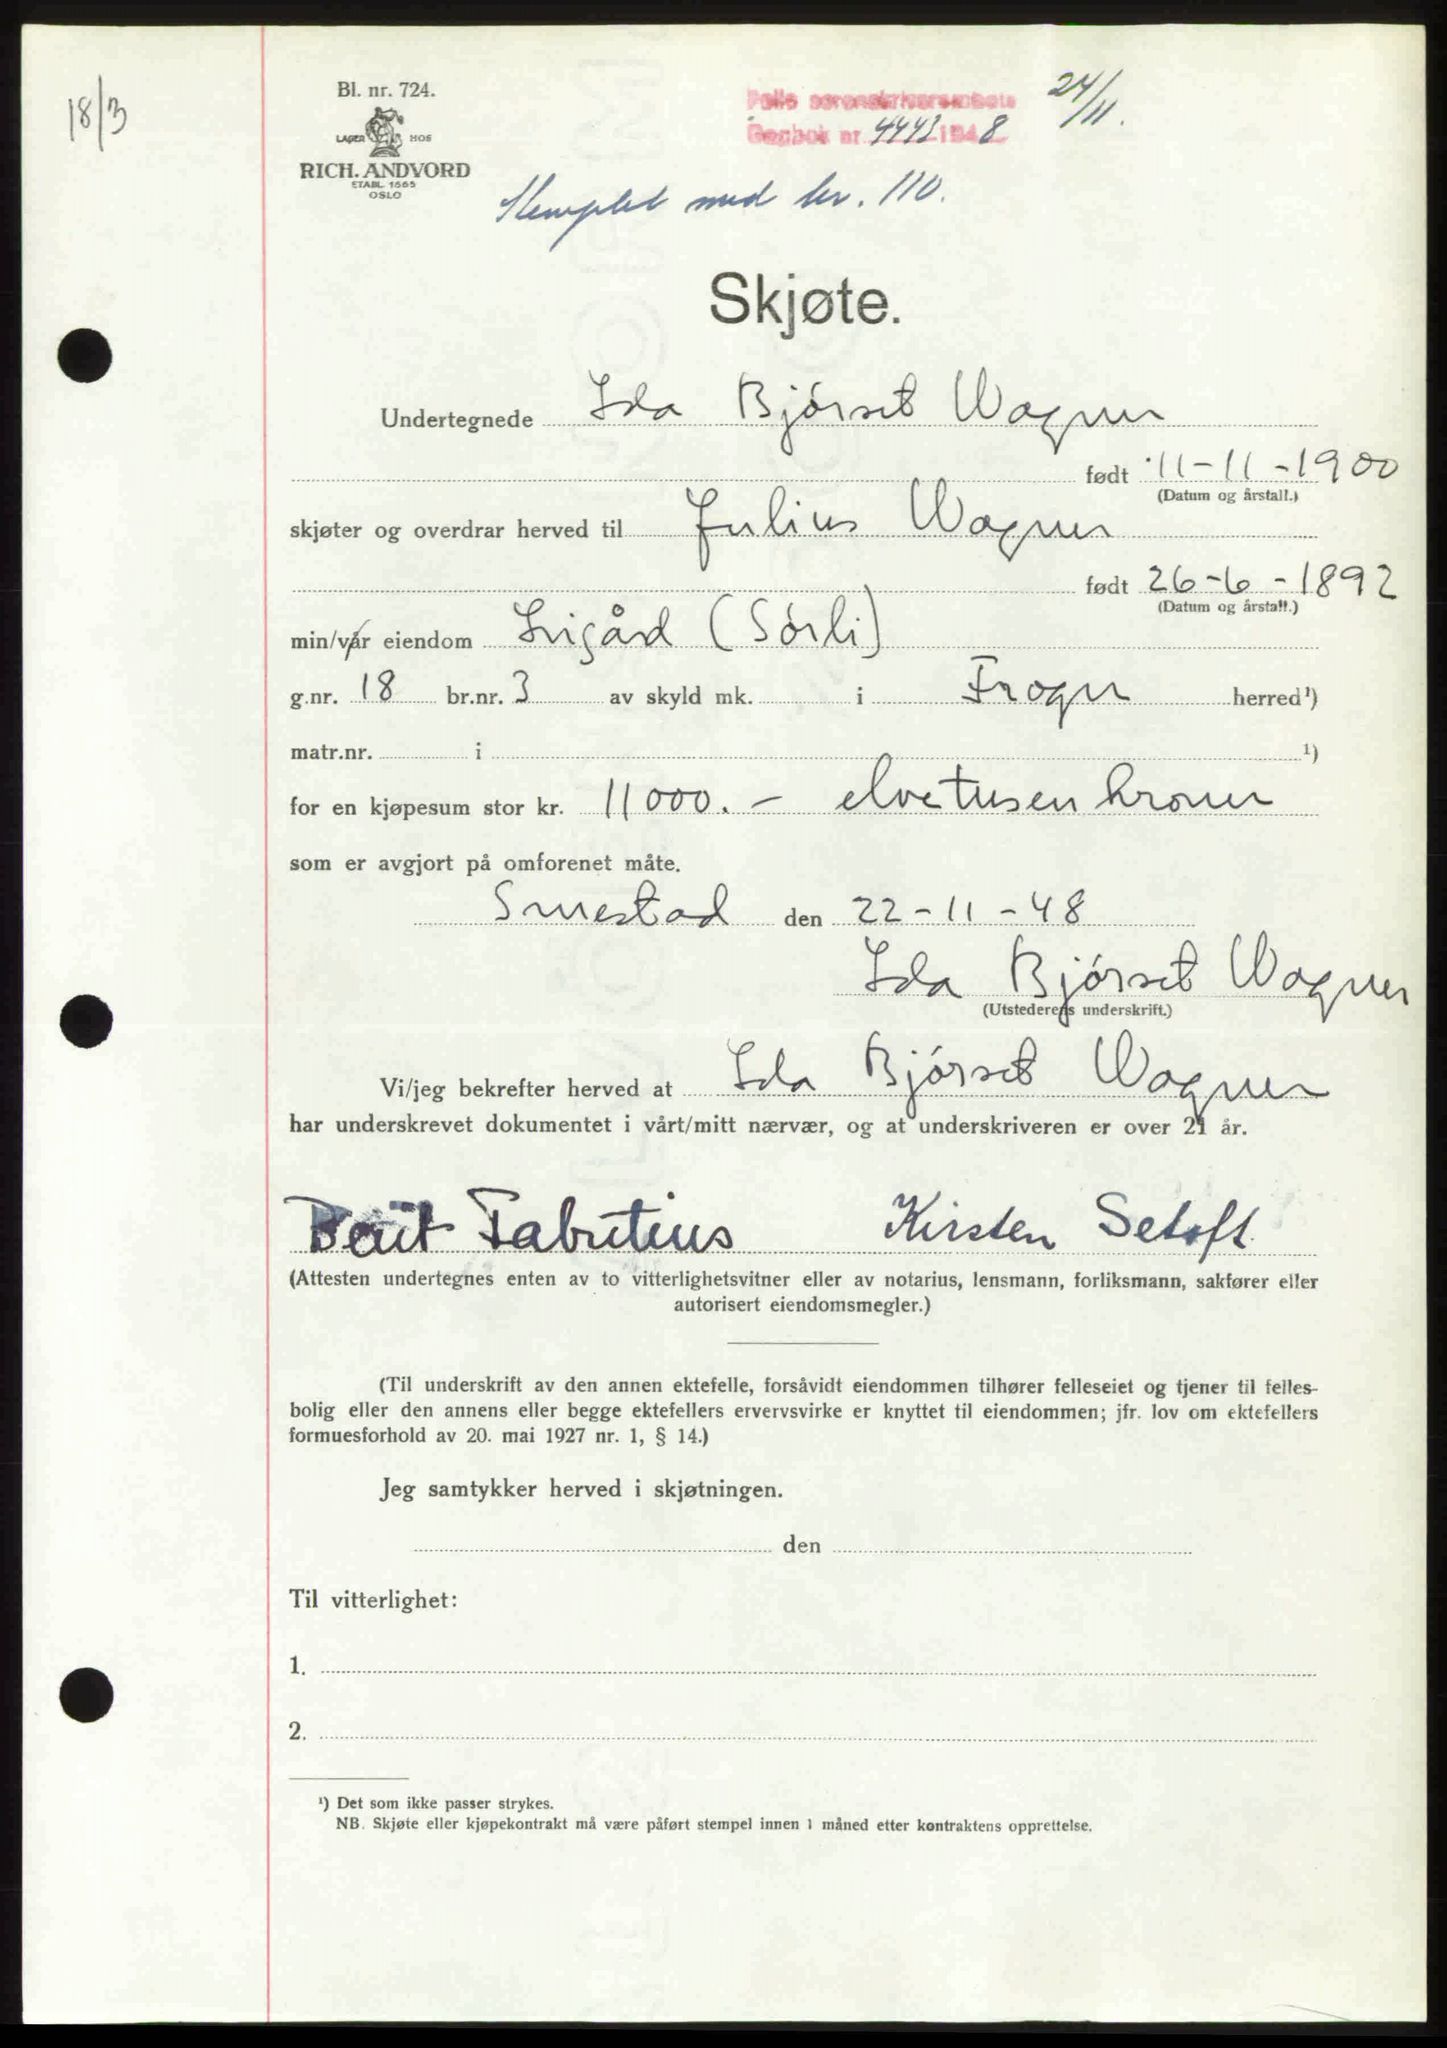 18/3
Bl. nr. 724.
LAGER HOS
RICH. ANDVORD
ETABL. 1865
OSLO
Follo sorenskriverembete
Dagbok nr. 4443 1948
24/11.
Stemplet med kr. 110.
Skjøte.
Undertegnede Ida Bjørset Wagner
født 11-11-1900
(Datum og årstall.)
skjøter og overdrar herved til Julius Wagner
født 26-6-1892
(Datum og årstall.)
min/vår eiendom (Sørli)
g.nr. 18 br.nr. 3 av skyld mk. i Frogn herred¹)
matr.nr. i ¹)
for en kjøpesum stor kr. 11000.- elvetusen kroner
som er avgjort på omforenet måte.
Smestad den 22-11-48
Ida Bjørset Wagner
(Utstederens underskrift.)
Vi/jeg bekrefter herved at Ida Bjørset Wagner
har underskrevet dokumentet i vårt/mitt nærvær, og at underskriveren er over 21 år.
Fabritius Kirsten Setoft
(Attesten undertegnes enten av to vitterlighetsvitner eller av notarius, lensmann, forliksmann, sakfører eller
autorisert eiendomsmegler.)
(Til underskrift av den annen ektefelle, forsåvidt eiendommen tilhører felleseiet og tjener til felles-
bolig eller den annens eller begge ektefellers ervervsvirke er knyttet til eiendommen; jfr. lov om ektefellers
formuesforhold av 20. mai 1927 nr. 1, § 14.)
Jeg samtykker herved i skjøtningen.
den
Til vitterlighet:
1.
2.
¹) Det som ikke passer strykes.
NB. Skjøte eller kjøpekontrakt må være påført stempel innen 1 måned etter kontraktens opprettelse.